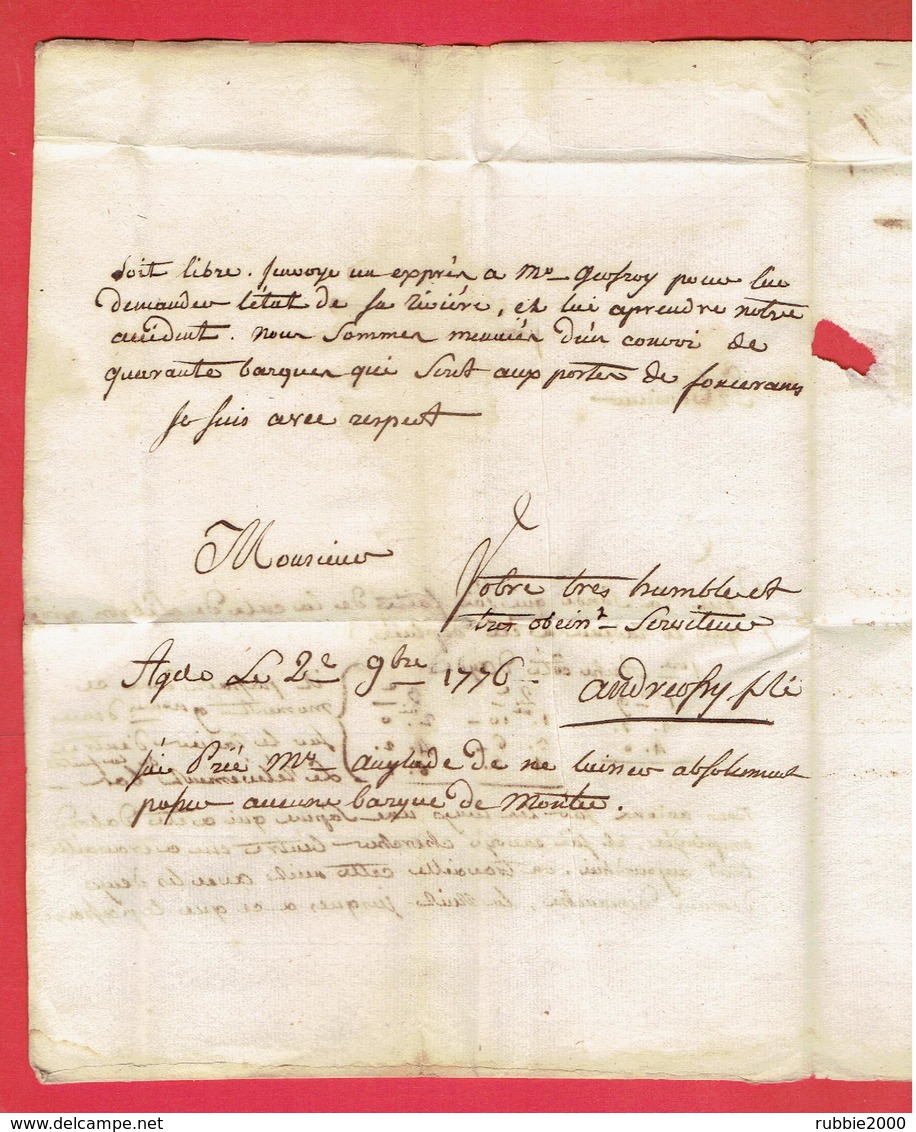 soit libre. J'envoye un exprès a Mr Geofroy pour lui
demander l'état de sa rivière, et lui aprendre notre
accident. nous sommes menacés d'un convoi de
quarante barques qui sont aux portes de foncerannes
Je suis avec respect
Monsieur
Votre très humble et
très obeint Serviteur
Agde Le 2e 9bre 1776
andreossy fils
j'ai Prié Mr anglade de ne laisser absolument
passer aucune barque de Montée.
rubbie2000